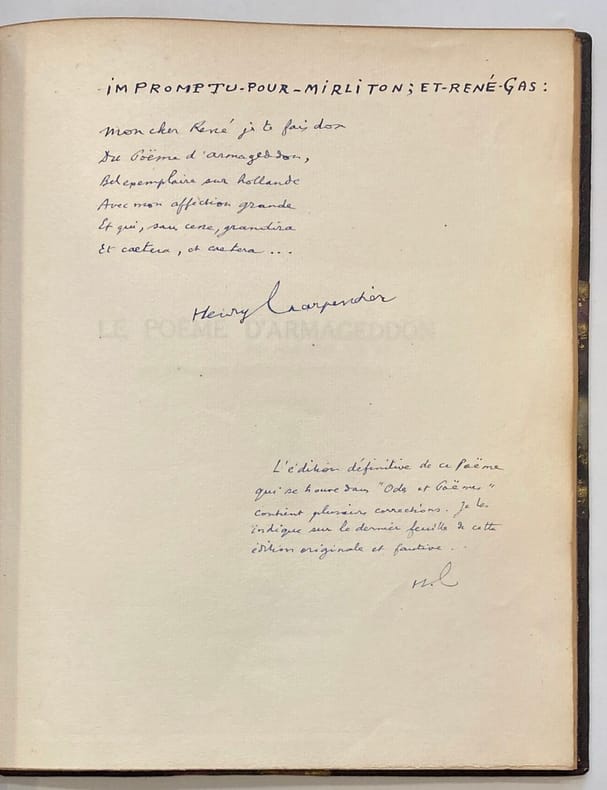 IMPROMPTU-POUR-MIRLITON; ET-RENÉ-GAS:
Mon cher René je te fais don
Du Poëme d'armageddon,
Bel exemplaire sur hollande
Avec mon affection grande
Et qui, sans cesse, grandira
Et caetera, et caetera ...
Henry Charpentier
LE POÈME D'ARMAGEDDON
L'édition définitive de ce Poëme
qui se trouve dans "Odes et Poëmes"
contient plusieurs corrections. Je les
indique sur la dernier feuille de cette
édition originale et fautive . .
H.C